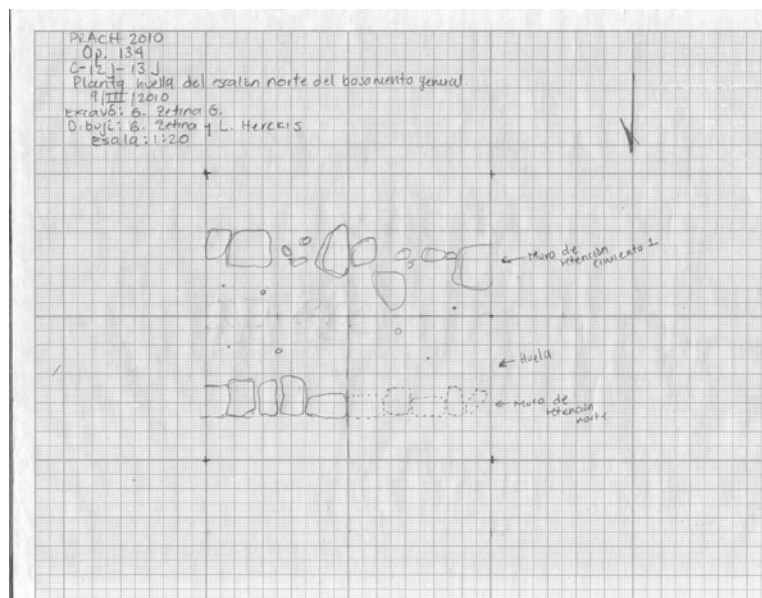 PRACH 2010
Op. 134
C-12J-13J
Planta huella del escalón norte del basamento general.
9/III/2010
Excavó: B. Zetina G.
Dibujó: B. Zetina y L. Herckis
Esala: 1:20
Muro de
retención
cimiento 1
Huela
Muro de
retención
norte